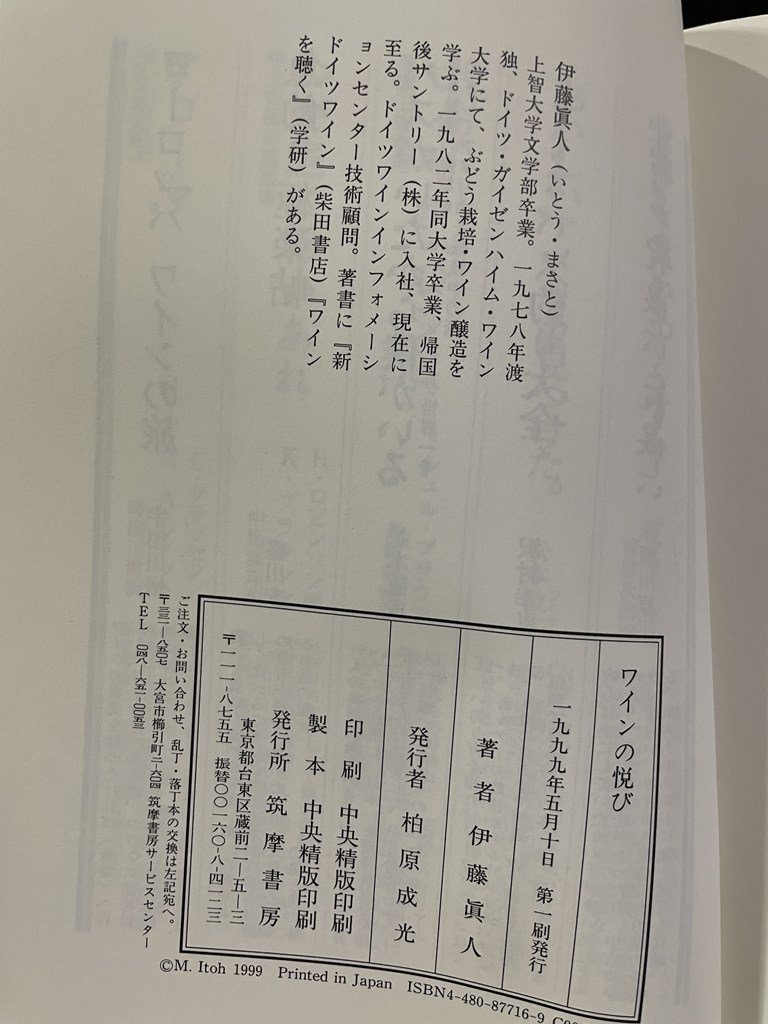 伊藤眞人（いとう・まさと）
上智大学文学部卒業。一九七八年渡
独、ドイツ・ガイゼンハイム・ワイン
大学にて、ぶどう栽培・ワイン醸造を
学ぶ。一九八二年同大学卒業、帰国
後サントリー（株）に入社、現在に
至る。ドイツワインインフォメーシ
ョンセンター技術顧問。著書に『新
ドイツワイン』（柴田書店）『ワイン
を聴く』（学研）がある。
ワインの悦び
一九九九年五月十日　第一刷発行
著者　伊藤眞人
発行者　柏原成光
印刷　中央精版印刷
製本　中央精版印刷
発行所　筑摩書房
東京都台東区蔵前二―五―三
〒一一一-八七五五　振替〇〇一六〇-八-四一二三
ご注文・お問い合わせ、乱丁・落丁本の交換は左記宛へ。
〒三三一―八五〇七　大宮市櫛引町二-六〇四　筑摩書房サービスセンター
TEL　〇四八-六五一-〇〇五三
©M. Itoh 1999　Printed in Japan　ISBN4-480-87716-9